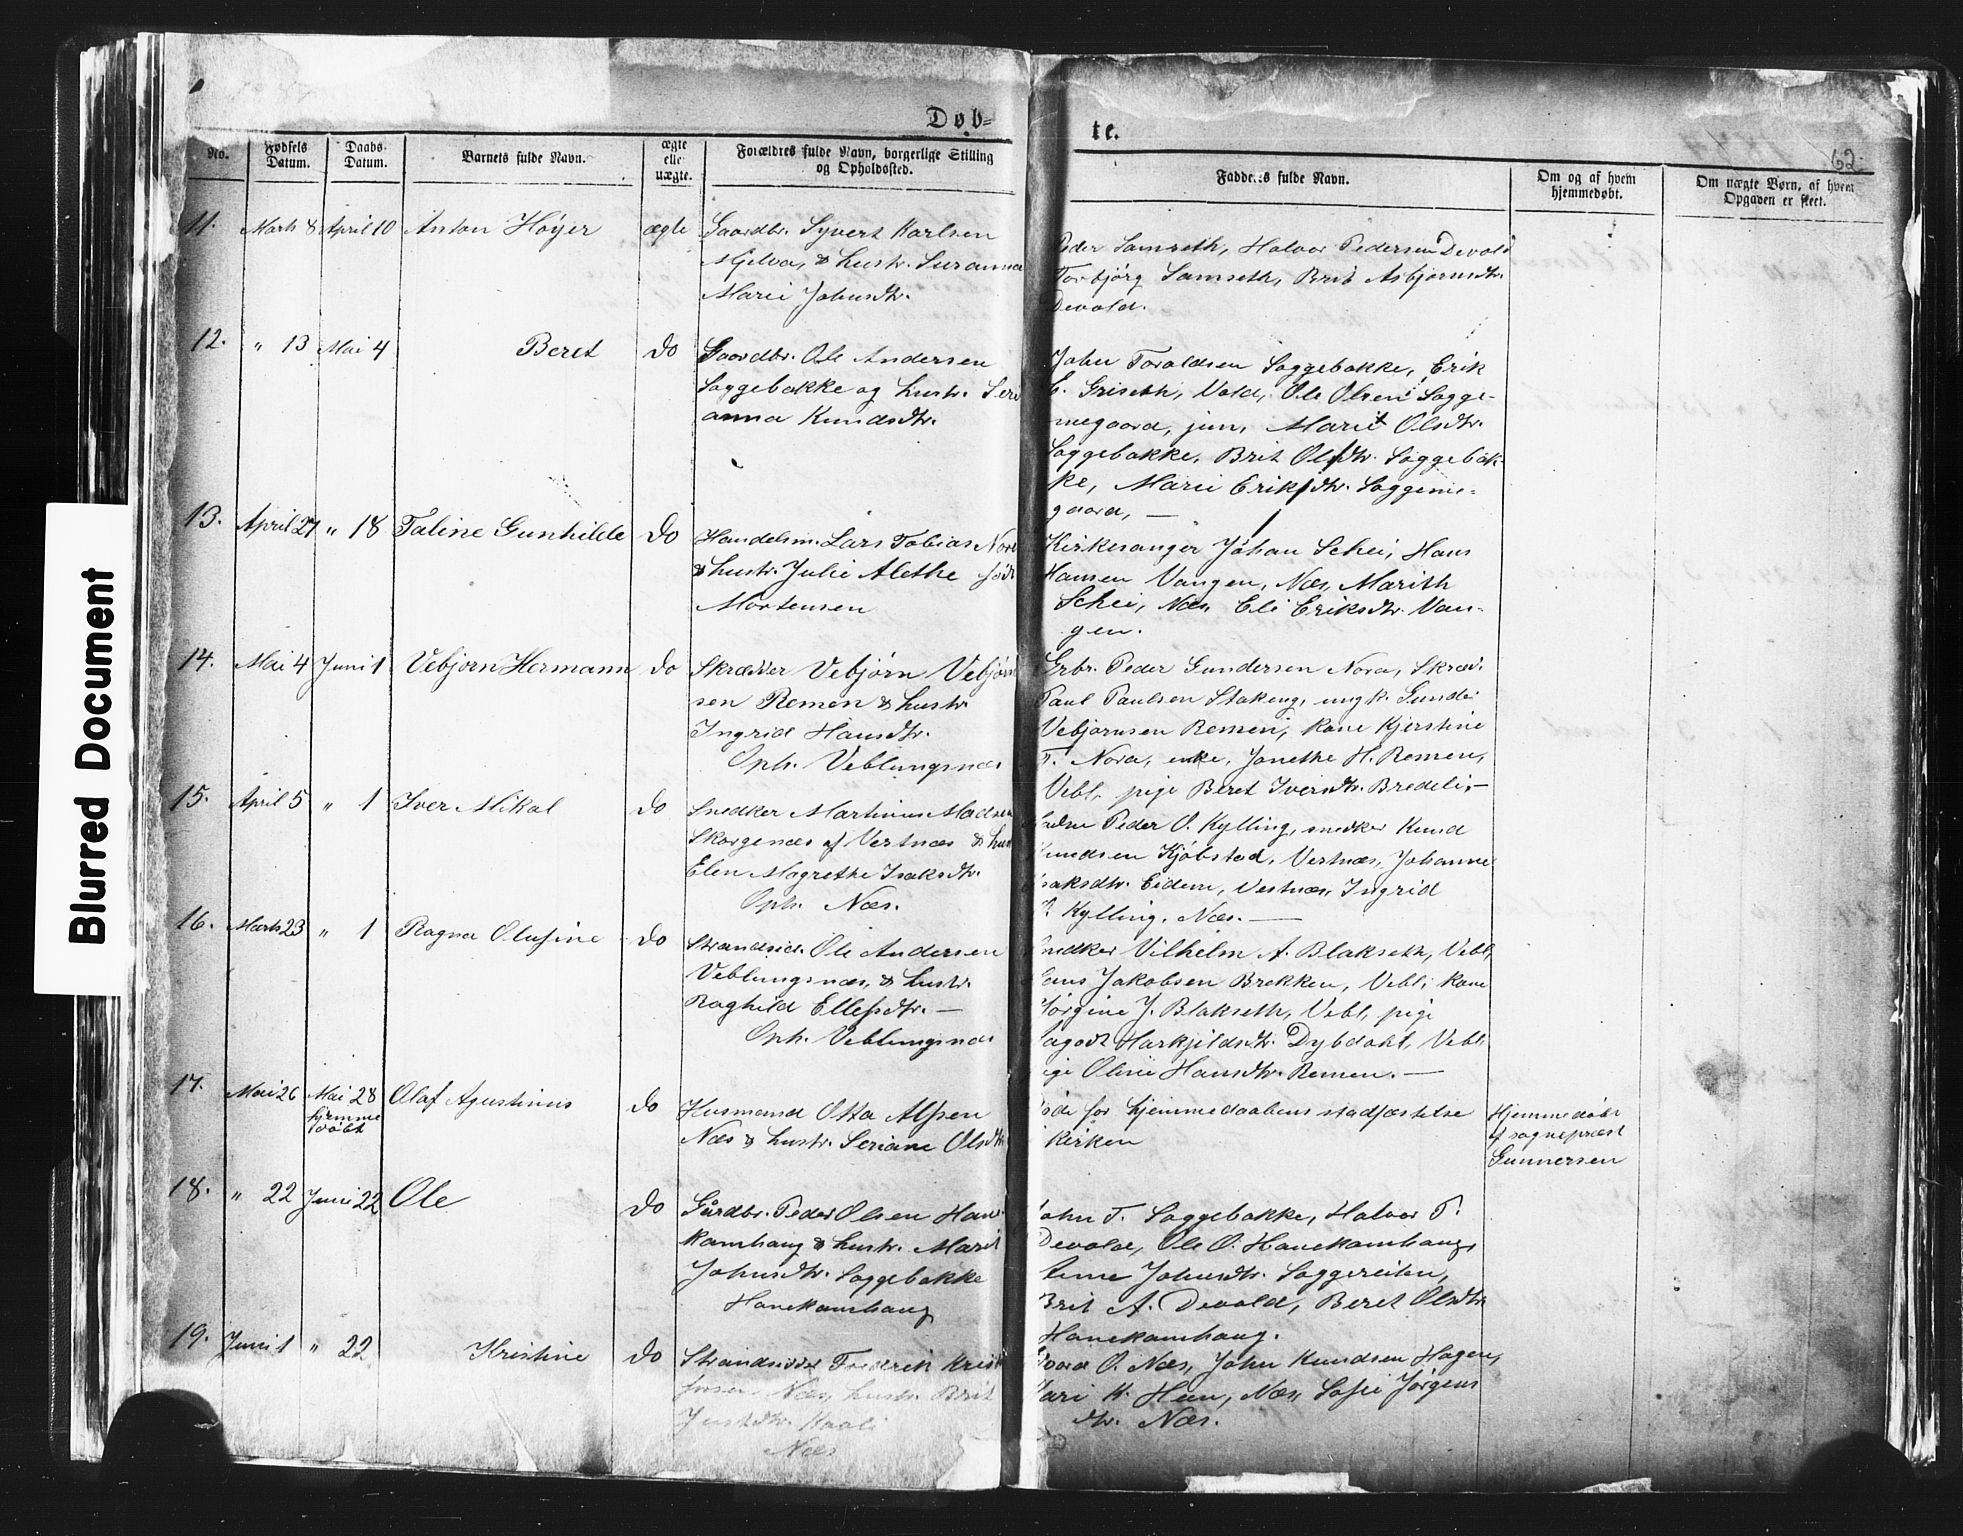 Døb=
te.
62.
No.
Fødsels Datum.
Daabs- Datum.
Barnets fulde Navn.
ægte elle uægte.
Forældres fulde Navn, borgerlige Stilling og Opholdssted.
Fadderes fulde Navn.
Om og af hvem hjemmedøbt.
Om uægte Børn, af hvem Opgaven er skeet.
Blurred Document
11. Marts 8 April 10 Anton Höyer ægte Gaardbr. Syvert Karlsen
Mjelva, & hustr. Susanna
Marie Johnsdtr.
Peder Samseth, Halvor Pedersen Devold
Torbjörg Samseth, Brit Asbjørnsdtr.
Devold.
12. " 13 Mai 4 Beret do Gaardbr. Ole Andersen
Soggebakke og hustr. Sere
anna Knudsdtr.
John Toraldsen Soggebakke, Erik
E. Griseth, Vold, Ole Olsen Sogge-
megaard, jun, Marit Olsdtr.
Soggebakke, Brit Olsdtr. Soggebak-
ke, Marie Eriksdtr. Soggeme-
gaard, —
13. April 27 " 18 Taline Gunhilde do Handelsm. Lars Tobias Nora
& hustr. Julie Alethe född
Mortensen
Kirkesanger Johan Schei, Hans
Hansen Vangen, Næs, Marith
Schei, Næs, Eli Eriksdtr. Van-
gen.
14. Mai 4 Juni 1 Vebjørn Hermann do Skrædder Vebjørn Vebjørn
sen Remen & hustr.
Ingrid Hansdtr.
Oph. Veblungsnæs
Grbr. Peder Gundersen Nora, Skræd.
Paul Paulsen Stokeng, ungk. Gunder
Vebjørnsen Remen, kone Kjerstine
T. Nora, enke, Jonethe H. Remen,
Vebl, pige Beret Iversdtr. Bredeli, —
15. April 5 " 1 Iver Mikal do Snedker Martinus Madsen
Skorgenæs af Vestnæs & hus
Elen Magrethe Isaksdtr.
Oph. Næs.
Peder O. Kylling, snedker Knud
Knudsen Kjøbstad, Vestnæs, Johanne
Isaksdtr. Eidem, Vestnæs, Ingrid
Kylling, Næs. —
16. Marts 23 " 1 Ragna Olufine do Strandsid. Ole Andersen
Veblungsnæs, & hustr.
Raghild Ellefsdtr. —
Oph. Veblungsnæs
Snedker Vilhelm A. Blakseth, Vebl,
Hans Jakobsen Brekken, Vebl, kone
Jørgine J. Blakseth, Vebl, pige
Harkjeldsdtr. Dybdahl, Vebl
pige Oline Hansdtr. Remen. —
17. Mai 26 Mai 28 hjemme döbt Olaf Agustinus do Husmand Otto Alfsen
Næs & hustr. Seriane Olsdtr
for hjemmedaabens stadfæstelse
i kirken
Hjemmedøbt
af sognepræst
Gunnersen
18. " 22 Juni 22 Ole do Gårdbr. Peder Olsen Hane
kamhaug & hustr. Marit
Johnsdtr. Soggebakke
Hanekamhaug
John T. Soggebakke, Halvor P.
Devold, Ole O. Hanekamhaug,
Anne Johnsdtr. Soggereiten,
Brit A. Devold, Beret Olsdtr
Hanekamhaug.
19. Juni 1 " 22 Kristine do Strandsidder Fredrik Krist
Næs, hustr. Brit
Næs
O. Næs, John Knudsen Hagen,
Kari K. Hen, Næs, Sofie Jørgens
dtr. Næs.